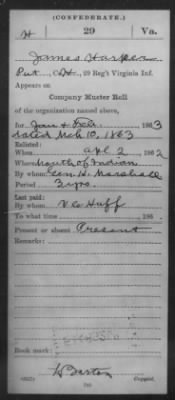 (CONFEDERATE.)
H 29 Va.
James Harper
Pvt, Co. H, 29 Reg't Virginia Inf.
Appears on
Company Muster Roll
of the organization named above,
for Jan & Feb, 1863
dated Mch 10, 1863
Enlisted:
When Apl 2, 1862
Where Mouth of Indian
By whom Gen H. Marshall
Period 3 yrs.
Last paid:
By whom V. C. Huff
To what time , 186
Present or absent Present
Remarks:
Book mark:
Copyist.